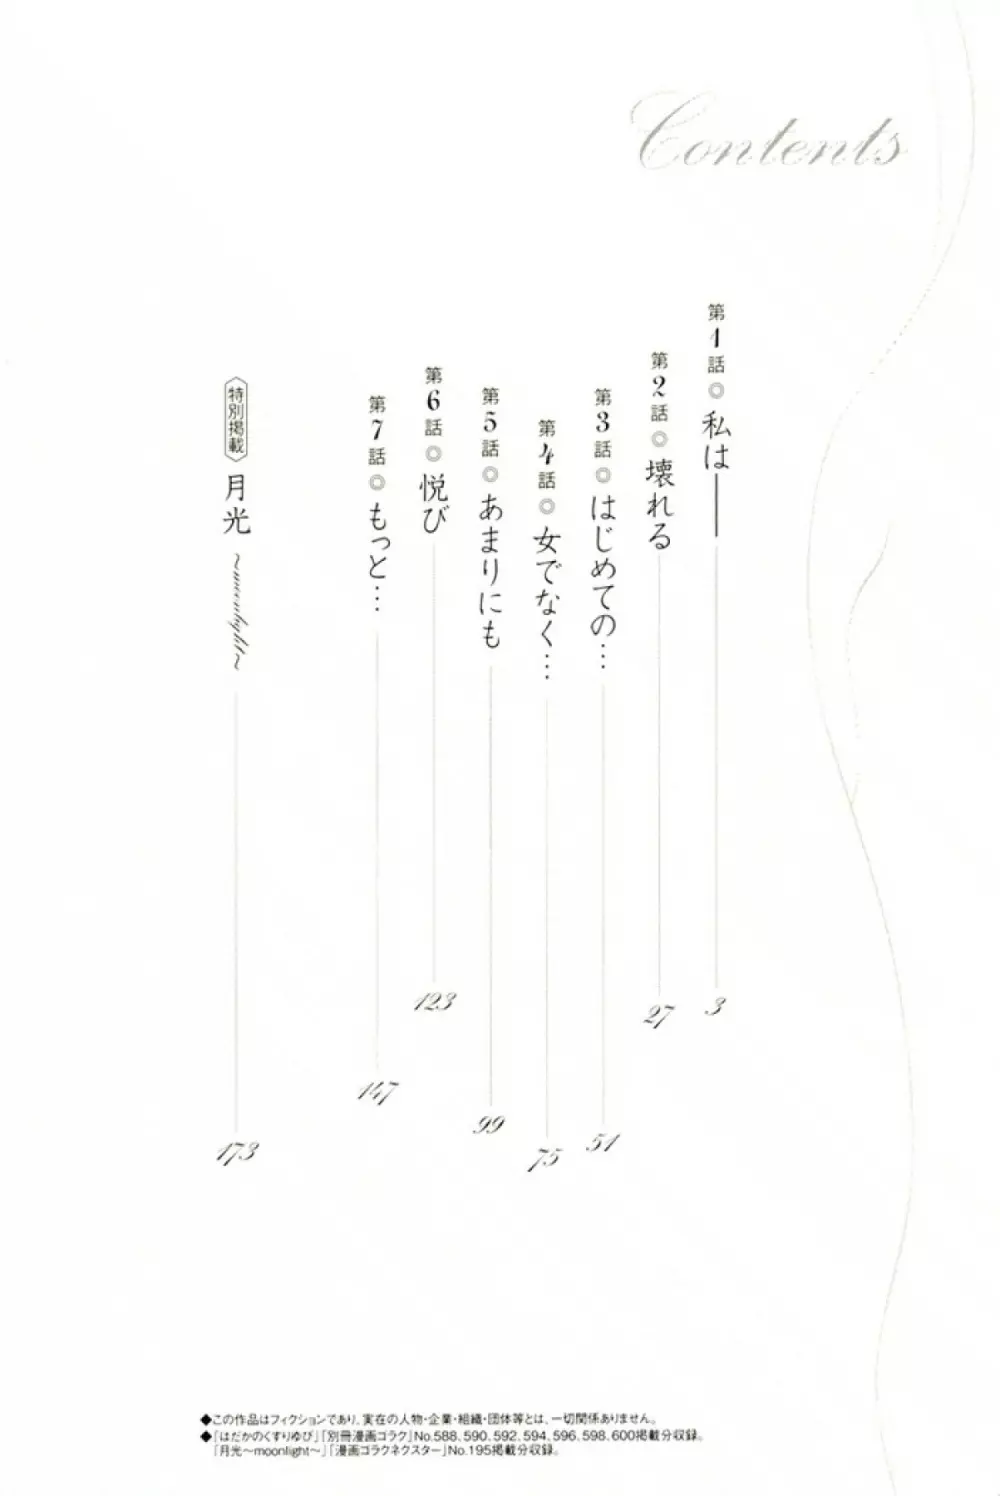 Contents
第1話◎私は―― 3
第2話◎壊れる 27
第3話◎はじめての… 51
第4話◎女でなく… 75
第5話◎あまりにも 99
第6話◎悦び 123
第7話◎もっと… 147
特別掲載 月光 ～moonlight～ 173
◆この作品はフィクションであり、実在の人物・企業・組織・団体等とは、一切関係ありません。
◆「はだかのくすりゆび」「別冊漫画ゴラク」No.588、590、592、594、596、598、600掲載分収録。
「月光～moonlight～」「漫画ゴラクネクスター」No.195掲載分収録。